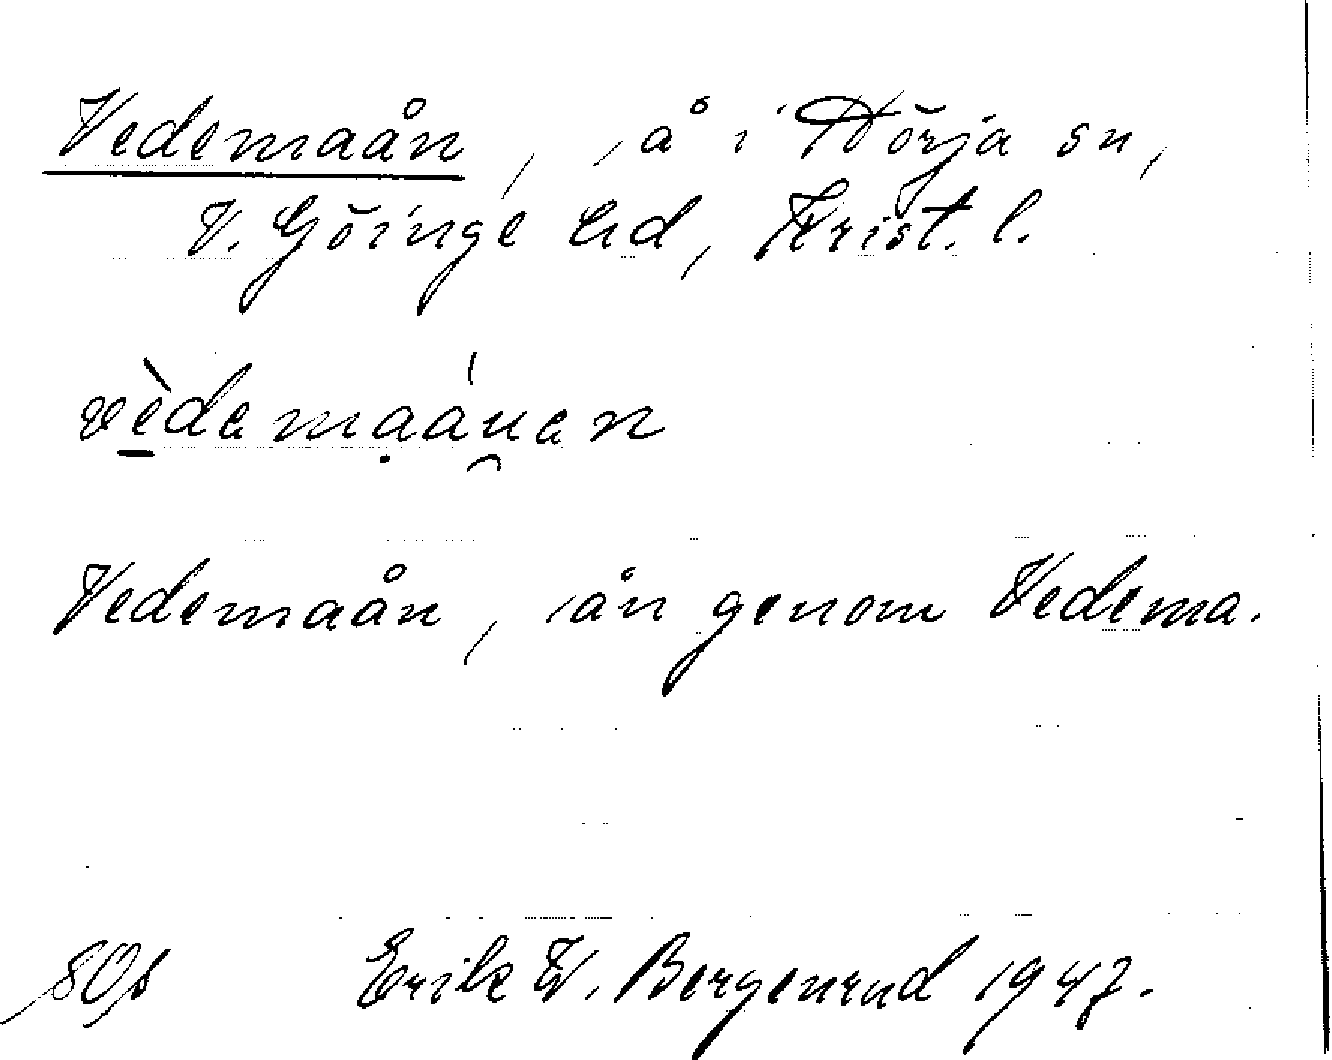 Vedemaån, å i Nörja sn,
V. Göinge hd, Krist. l.
vèdemaánen
Vedemaån, ån genom Vedema.
Erik W. Bergenrud 1947.